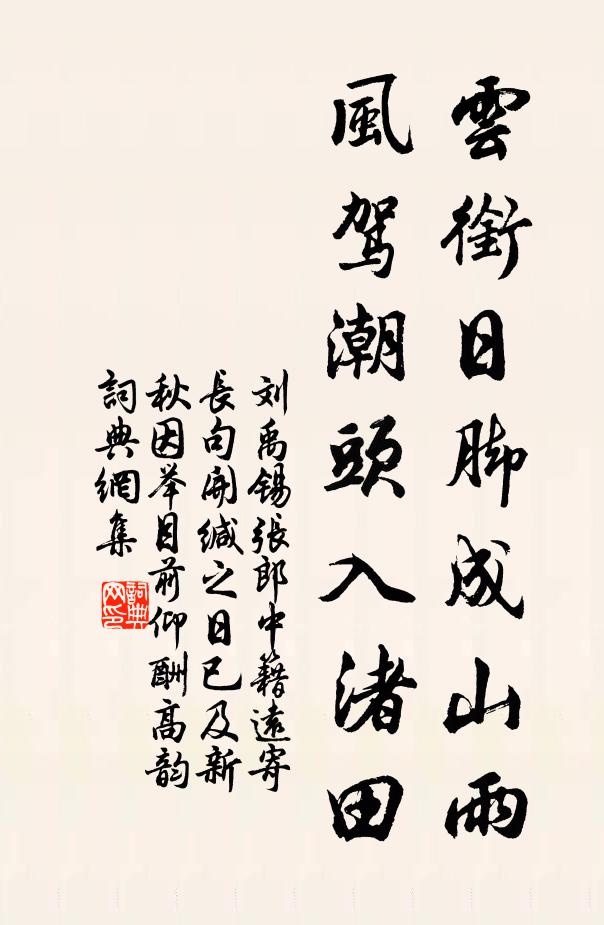 雲銜日脚成山雨
風駕潮頭入渚田
刘禹锡張郎中籍遠寄
長句開缄之日已及新
秋因举目前仰酬高韵
詞典網集
詞典网印